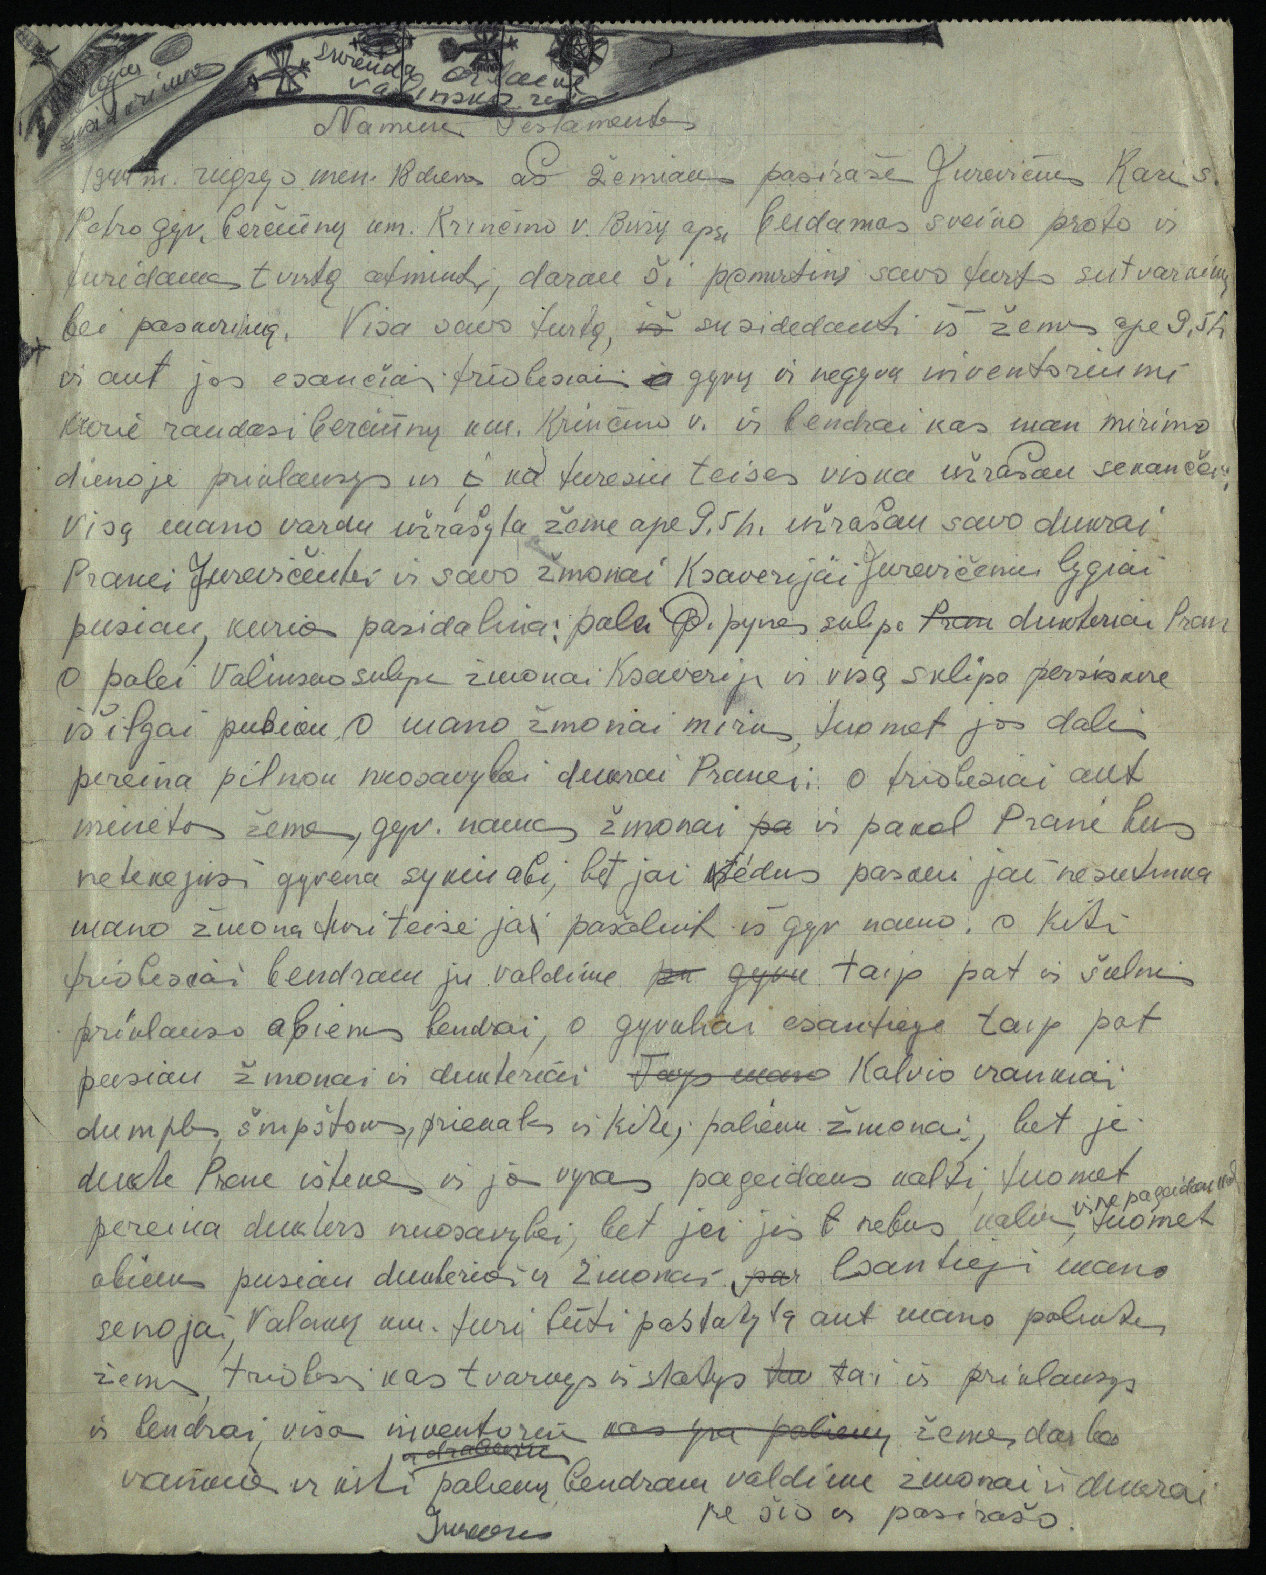 Naminis Testamentas
1944 m. rugsejo men. 18 diena aš žemiau pasirašęs Jurevičius Kazis.
Petro gyv. Berčiūnų km. Krinčino v. Biržų aps, budamas sveiko proto ir
turėdamas tvirtą atmintį, darau ši pomirtini savo turto sutvarkimą
bei paskirimą. Visa savo turtą, iš susidedanti iš žemės ape 9,5 h.
ir ant jos esančiai triobesiai gyvų ir negyvų inventoriumi
kurie randasi Berčiūnų km. Krinčino v. ir bendrai kas man mirimo
dienoje priklausys ir į ka turesiu teises viska užrašau sekančiai;
Visą mano vardu užrašyta žeme ape 9,5 h. užrašau savo dukrai
Pranei Jurevičiutei ir savo žmonai Ksaverijai Jurevičienei lygiai
pusiau, kurios pasidalina: palei P. pynes sklipe Pran dukteriai Pranei
o palei Valinsko sklipe žmonai Ksaverijai ir visą sklipo perskire
išilgai pusiau, o mano žmonai mirus, tuomet jos dalis
pereina pilnon nuosavybei dukrai Pranei; o triobesiai ant
minėtos žemės, gyv. namas žmonai pa ir pakol Pranė bus
netekejusi gyvena sykiu abi, bet jai ištėdus paskui jai nesutinka
mano žmona turi teise jai pašalint iš gyv namo. o Kiti
triobesiai bendram ju valdime pa gyvu taip pat ir šulnis
priklauso abiems bendrai, o gyvuliai esantieje taip pat
pusiau žmonai ir dukteriai Taip mano Kalvio irankiai
dumplės, šrupštokas, priekalas ir Kiti, palieku žmonai, bet jei
duktė Pranė ištekės ir jos vyras pageidaus kalti, tuomet
ir nepageidaus kalti
pereina dukters nuosavybei, bet jei jis t nebus kalvis, tuomet
abiem pusiau dukteriai ir žmonai par Esantieji mano
senojai, Valakų km. turi būti pastatytą ant mano paliktos
žemės, triobesi kas tvarkys ir statys tas tai ir priklausys
ir bendrai visa inventorių kas yra palieku žemės darbo
vaikinė ir kiti palieku bendram valdime žmonai ir dukrai
Jurevičius pe šio ir pasirašo.